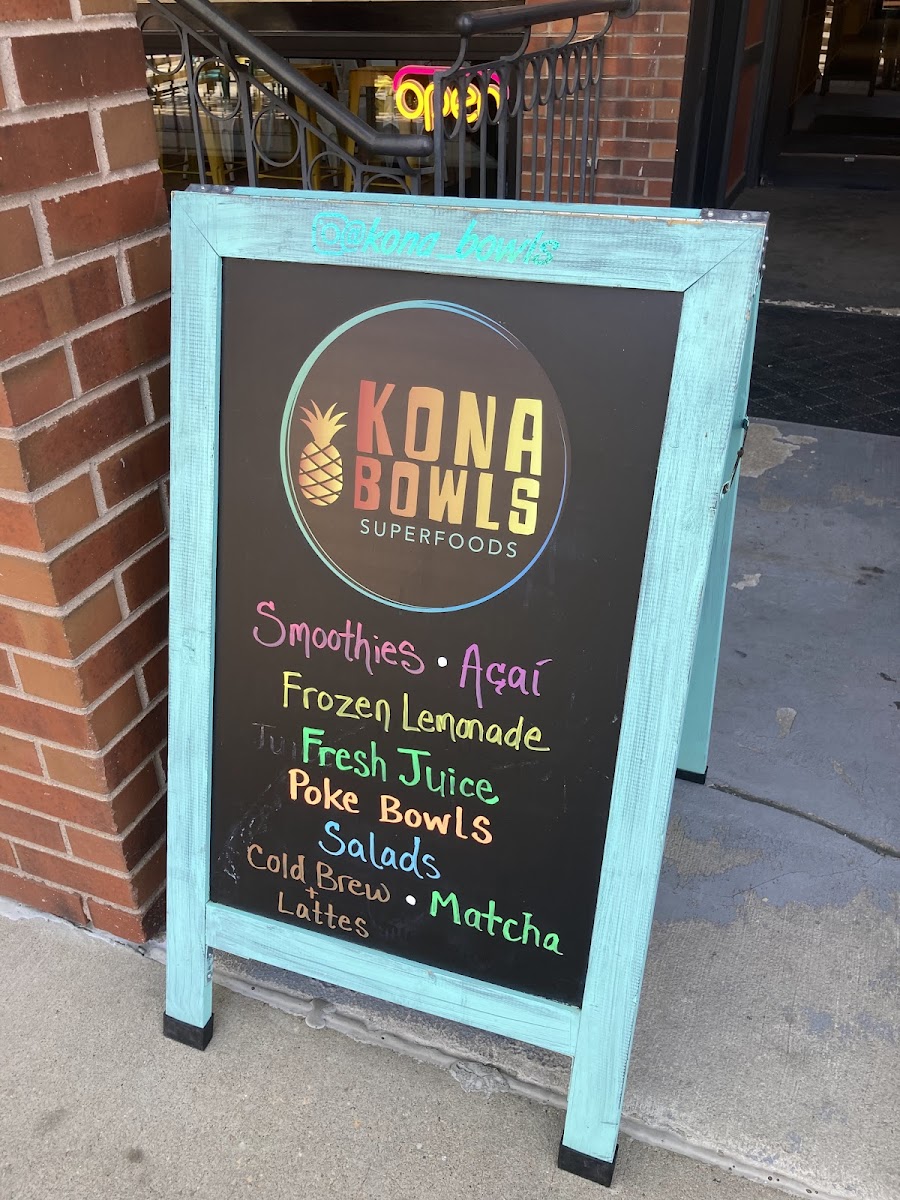 open
@kona_bowls
KONA
BOWLS
SUPERFOODS
Smoothies • Açaí
Frozen Lemonade
Fresh Juice
Poke Bowls
Salads
Cold Brew
+
Lattes • Matcha